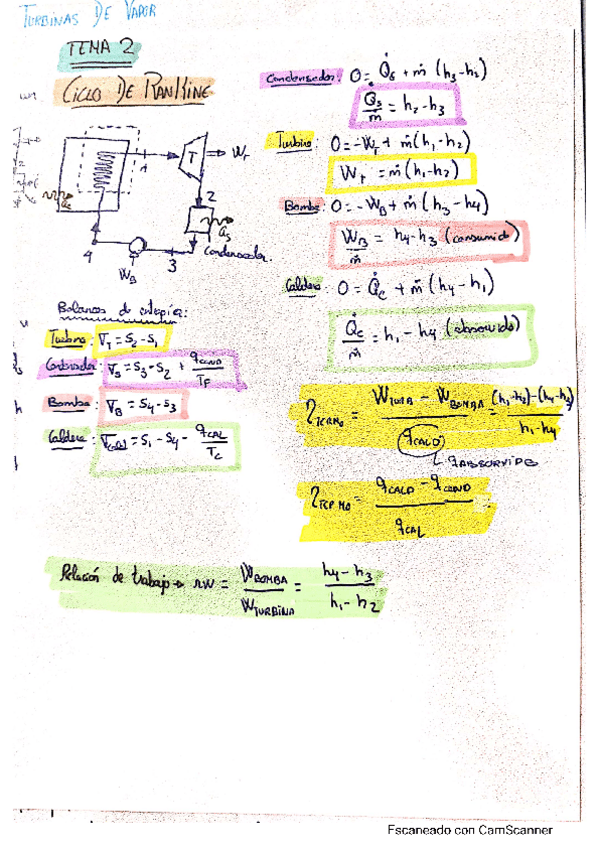 TURBINAS DE VAPOR
TEMA 2
CICLO DE RANKINE
T
Wτ
1
2
Qs
Condensador
3
4
W_B
Condensador: 0 = Q̇s + ṁ (h3-h2)
Q̇s/ṁ = h2-h3
Turbina: 0 = -Wτ + ṁ(h1-h2)
Wτ = ṁ(h1-h2)
Bomba: 0 = -W_B + ṁ(h3-h4)
W_B/ṁ = h4-h3 (consumido)
Caldera: 0 = Q̇c + ṁ(h4-h1)
Q̇c/ṁ = h1-h4 (absorvido)
Balances de entropía:
Turbina: ∇T = S2-S1
Condensador: ∇s = S3-S2 + qCOND/TF
Bomba: ∇B = S4-S3
Caldera: = S1-S4 - qCAL/TC
ηTERMO = (WTURB - WBOMBA)/qCALD = ((h1-h2)-(h4-h3))/(h1-h4)
qABSORVIDO
ηTERMO = (qCALD - qCOND)/qCAL
Relación de trabajo → rW = WBOMBA/WTURBINA = (h4-h3)/(h1-h2)
Escaneado con CamScanner